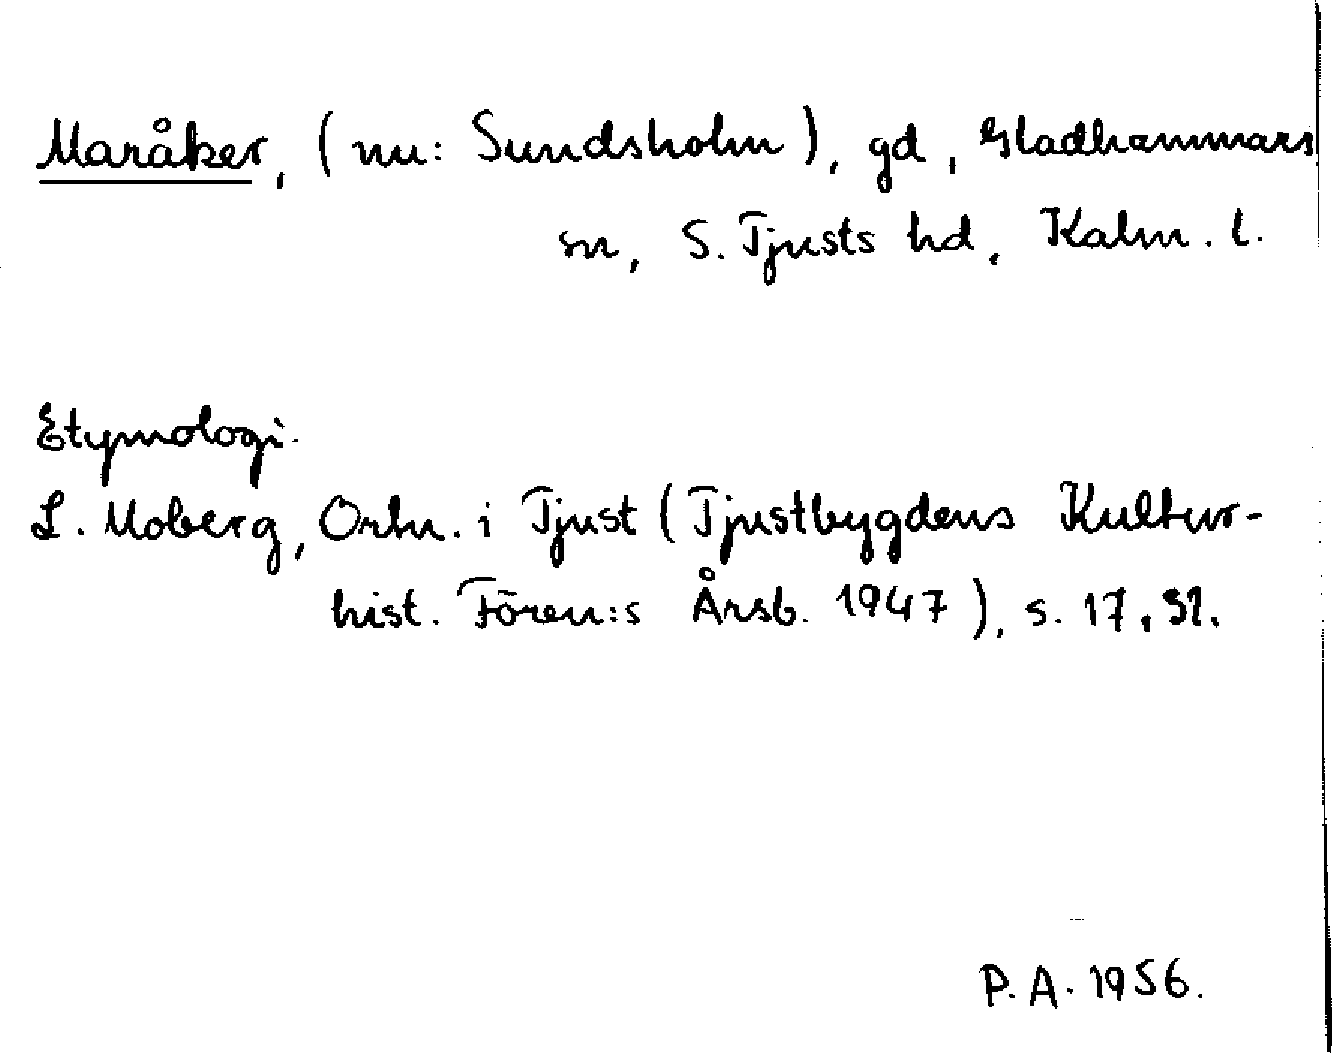 Maråker, (nu: Sundsholm), gd, Gladhammars
sn, S. Tjusts hd, Kalm. l.
Etymologi.
L. Moberg, Ortn. i Tjust (Tjustbygdens Kultur-
hist. Fören:s Årsb. 1947), s. 17, 31.
P. A. 1956.